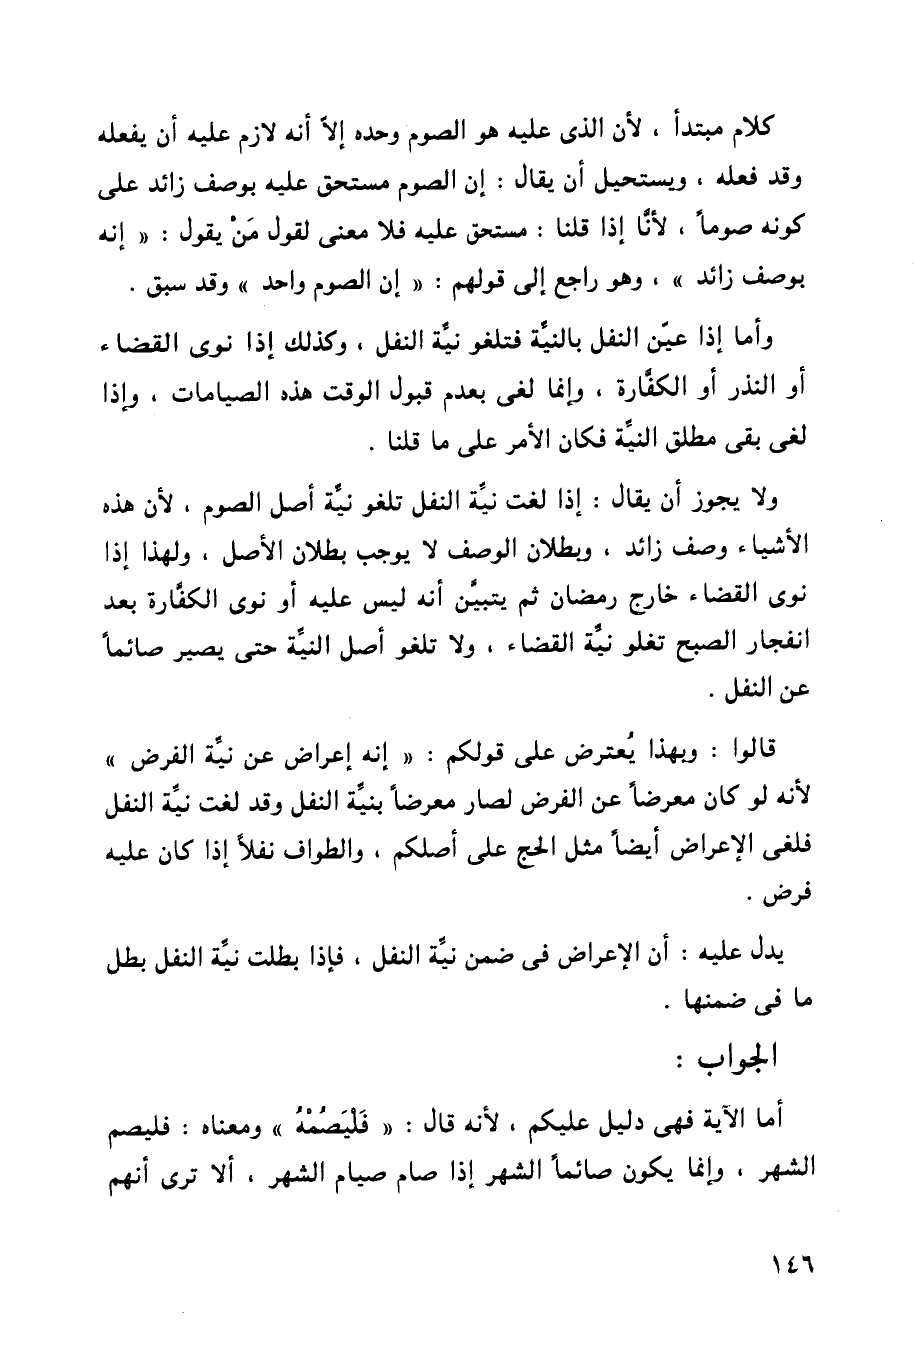 كلام مبتدأ ، لأن الذى عليه هو الصوم وحده إلاَّ أنه لازم عليه أن يفعله
وقد فعله ، ويستحيل أن يقال : إن الصوم مستحق عليه بوصف زائد على
كونه صوماً ، لأنَّا إذا قلنا : مستحق عليه فلا معنى لقول مَنْ يقول : « إنه
بوصف زائد » ، وهو راجع إلى قولهم : « إن الصوم واحد » وقد سبق .
وأما إذا عيّن النفل بالنيَّة فتلغو نيَّة النفل ، وكذلك إذا نوى القضاء
أو النذر أو الكفَّارة ، وإنما لغى بعدم قبول الوقت هذه الصيامات ، وإذا
لغى بقى مطلق النيَّة فكان الأمر على ما قلنا .
ولا يجوز أن يقال : إذا لغت نيَّة النفل تلغو نيَّة أصل الصوم ، لأن هذه
الأشياء وصف زائد ، وبطلان الوصف لا يوجب بطلان الأصل ، ولهذا إذا
نوى القضاء خارج رمضان ثم يتبيَّن أنه ليس عليه أو نوى الكفَّارة بعد
انفجار الصبح تغلو نيَّة القضاء ، ولا تلغو أصل النيَّة حتى يصير صائماً
عن النفل .
قالوا : وبهذا يُعترض على قولكم : « إنه إعراض عن نيَّة الفرض »
لأنه لو كان معرضاً عن الفرض لصار معرضاً بنيَّة النفل وقد لغت نيَّة النفل
فلغى الإعراض أيضاً مثل الحج على أصلكم ، والطواف نفلاً إذا كان عليه
فرض .
يدل عليه : أن الإعراض فى ضمن نيَّة النفل ، فإذا بطلت نيَّة النفل بطل
ما فى ضمنها .
الجواب :
أما الآية فهى دليل عليكم ، لأنه قال : « فَلْيَصُمْهُ » ومعناه : فليصم
الشهر ، وإنما يكون صائماً الشهر إذا صام صيام الشهر ، ألا ترى أنهم
١٤٦